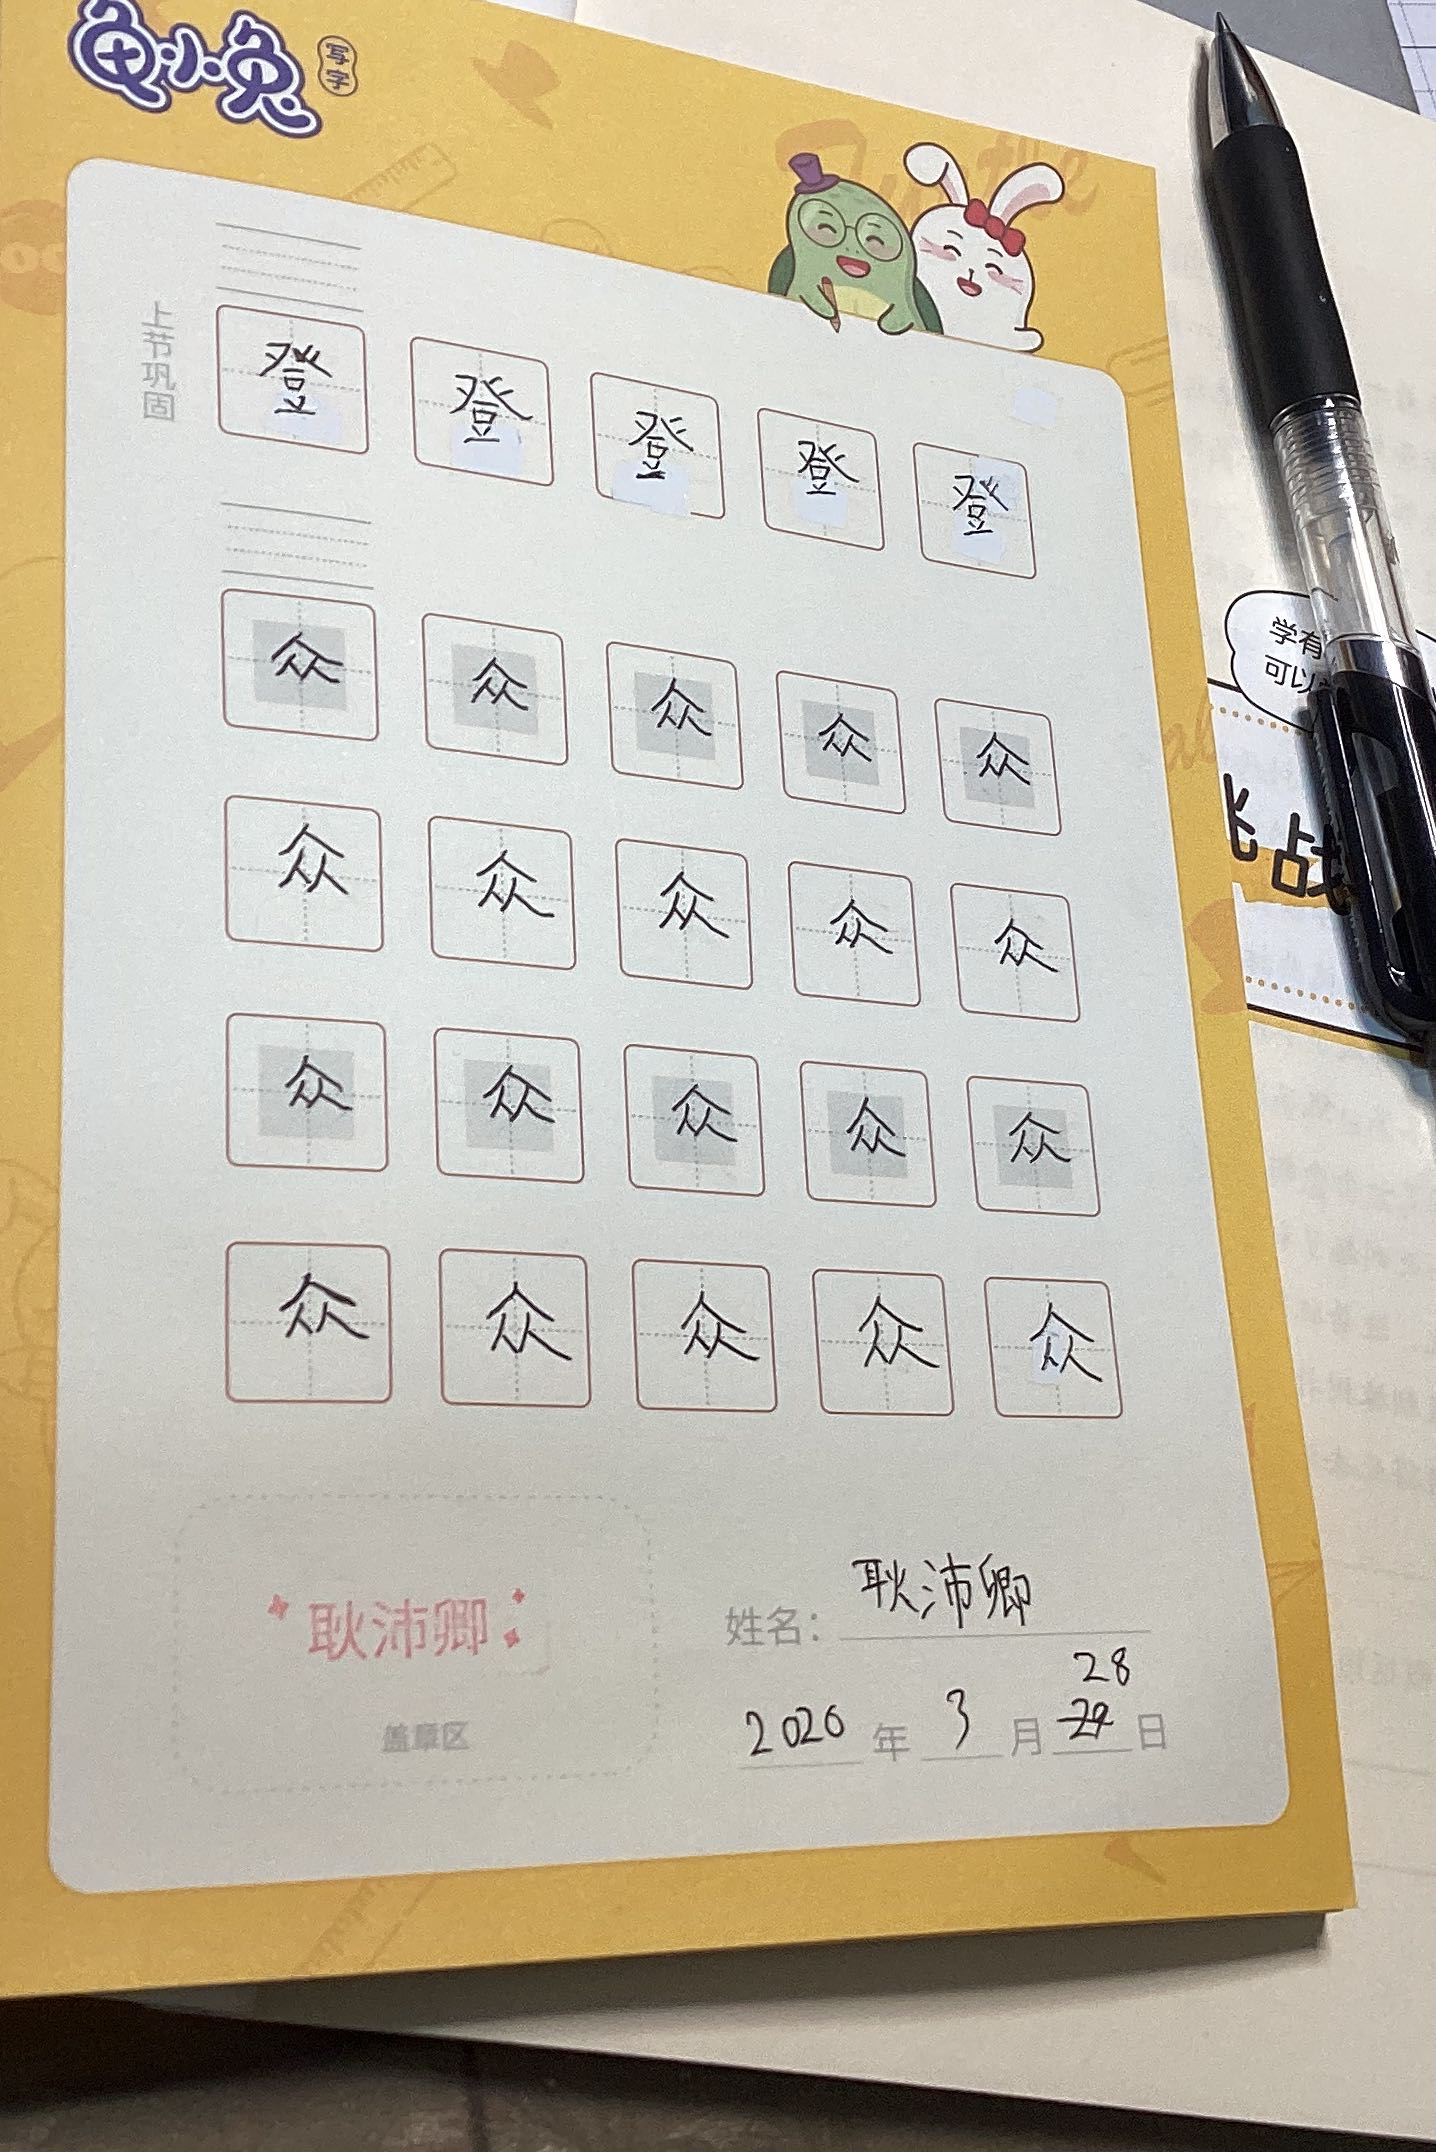 龟小兔 写字
Turtle
上节巩固
登 登 登 登 登
众 众 众 众 众
众 众 众 众 众
众 众 众 众 众
众 众 众 众 众
耿沛卿
盖章区
姓名: 耿沛卿
28
2026 年 3 月 29 日
学有
可以
挑战